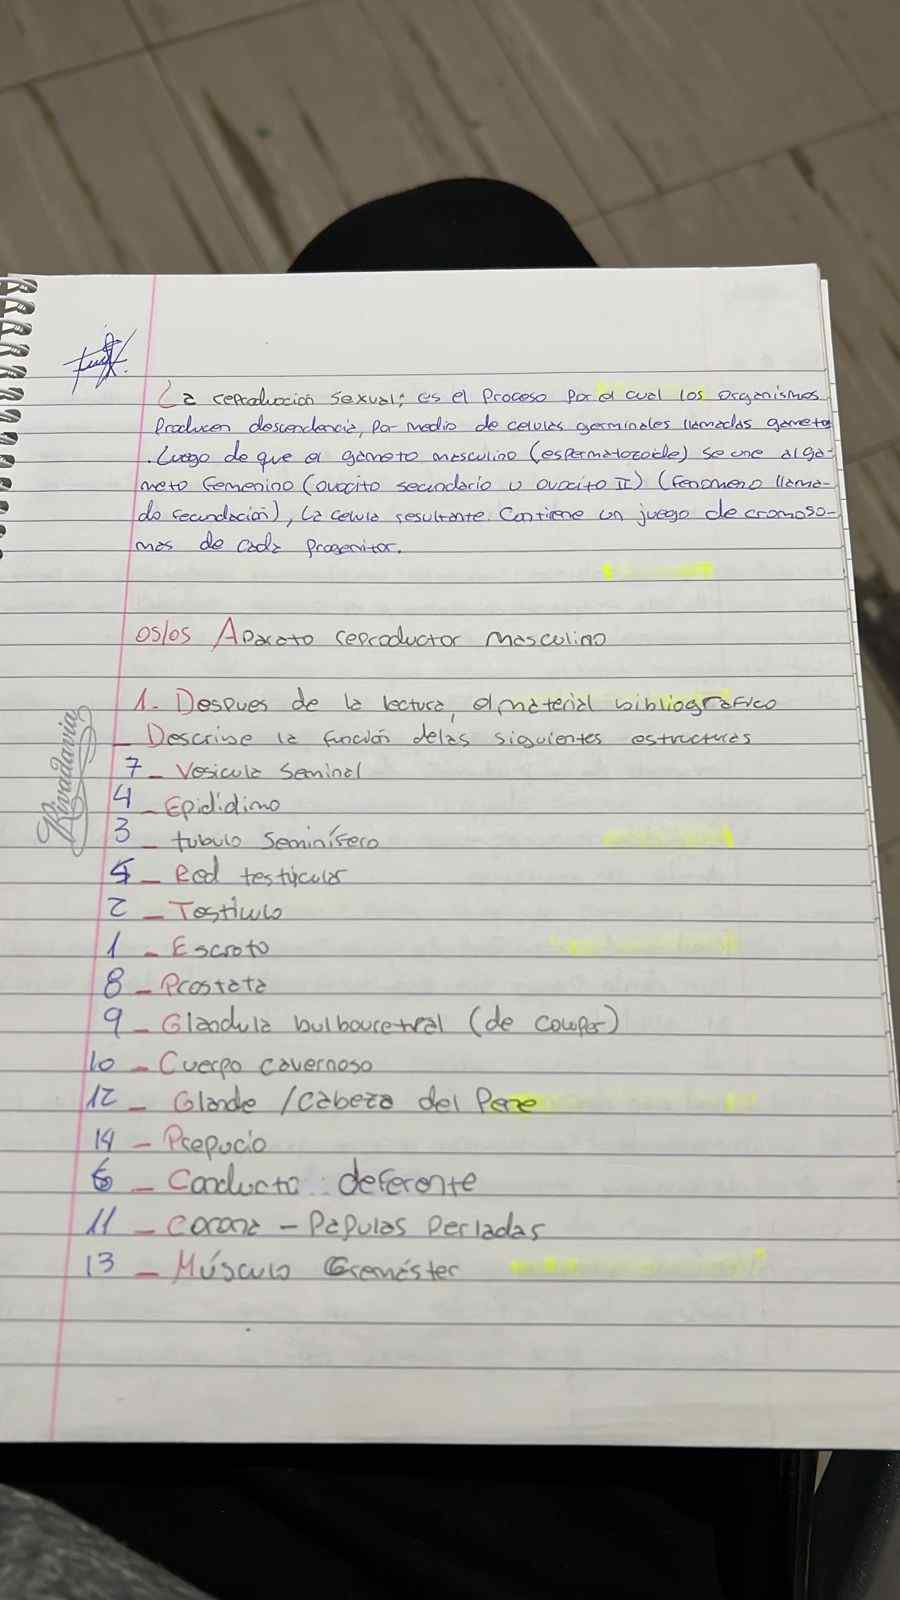 La reproducción sexual; es el Proceso por el cual los organismos
Producen descendencia, por medio de celulas germinales llamadas gametos
. Luego de que el gameto masculino (espermatozoide) se une al ga-
meto femenino (ovocito secundario u ovocito II) (fenomeno llama-
do fecundación), La celula resultante. Contiene un juego de cromoso-
mas de cada progenitor.
05/05 Aparato reproductor masculino
1. Despues de la lectura, el material bibliográfico
_ Describe la función de las siguientes estructuras
Rivadavia
7 _ Vesicula seminal
4 _ Epididimo
3 _ tubulo seminífero
5 _ Red testicular
2 _ Testiculo
1 _ Escroto
8 _ Prostata
9 _ Glandula bulbouretral (de cowper)
10 _ Cuerpo cavernoso
12 _ Glande / Cabeza del Pene
14 _ Prepucio
6 _ Conducto deferente
11 _ Corona - Papulas perladas
13 _ Músculo Cremáster